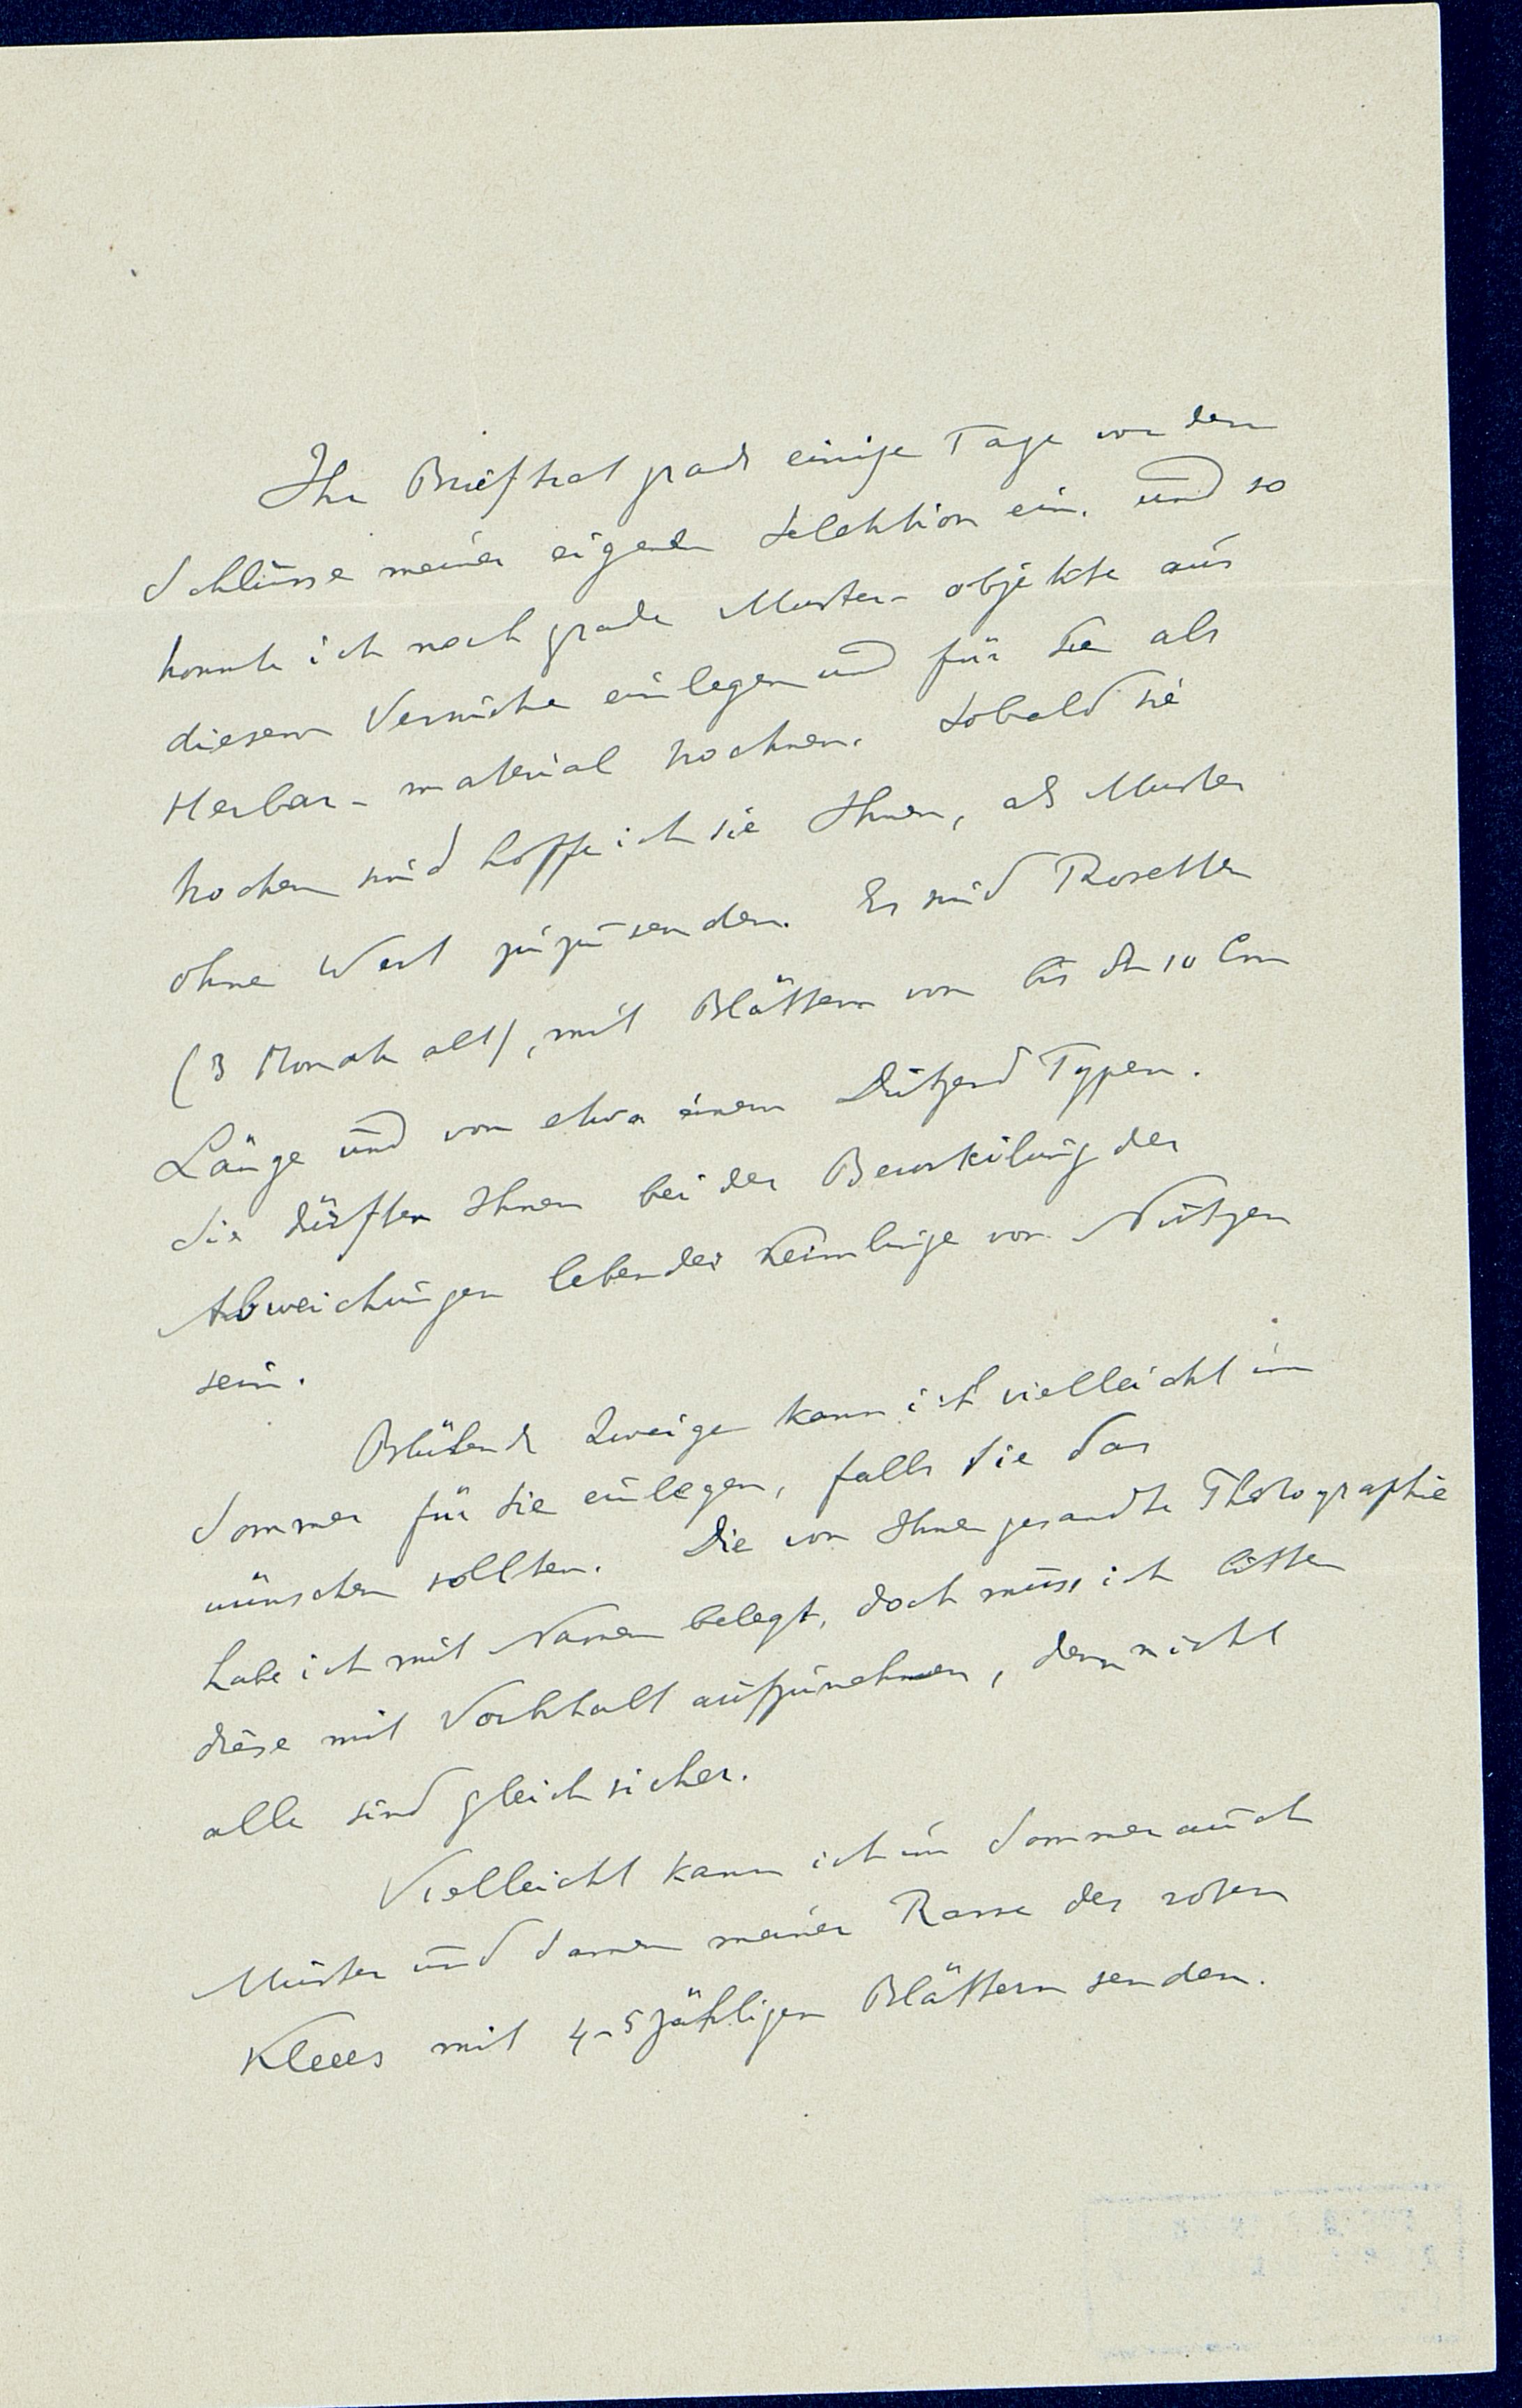 Ihr Brief trat grade einige Tage vor dem
Schlusse meiner eigenen Selektion ein. und so
konnte ich noch grade Muster-objekte aus
diesem Versuche einlegen und für Sie als
Herbar-material trocknen. Sobald sie
trocken sind hoffe ich sie Ihnen, als Muster
ohne Wert zuzusenden. Es sind Rosetten
(3 Monate alt), mit Blättern von bis 10 Cm
Länge und von etwa einem Dutzend Typen.
Sie dürften Ihnen bei der Beurteilung der
Abweichungen lebender Keimlinge von Nutzen
sein.
Blühende Zweige kann ich vielleicht im
Sommer für Sie einlegen, falls Sie das
wünschen sollten. Die von Ihnen gesandte Photographie
habe ich mit Namen belegt, doch muss ich bitten
diese mit Vorbehalt aufzunehmen, denn nicht
alle sind gleich sicher.
Vielleicht kann ich im Sommer auch
Muster und Samen meiner Rasse des roten
Kleees mit 4-5 zähligen Blättern senden.